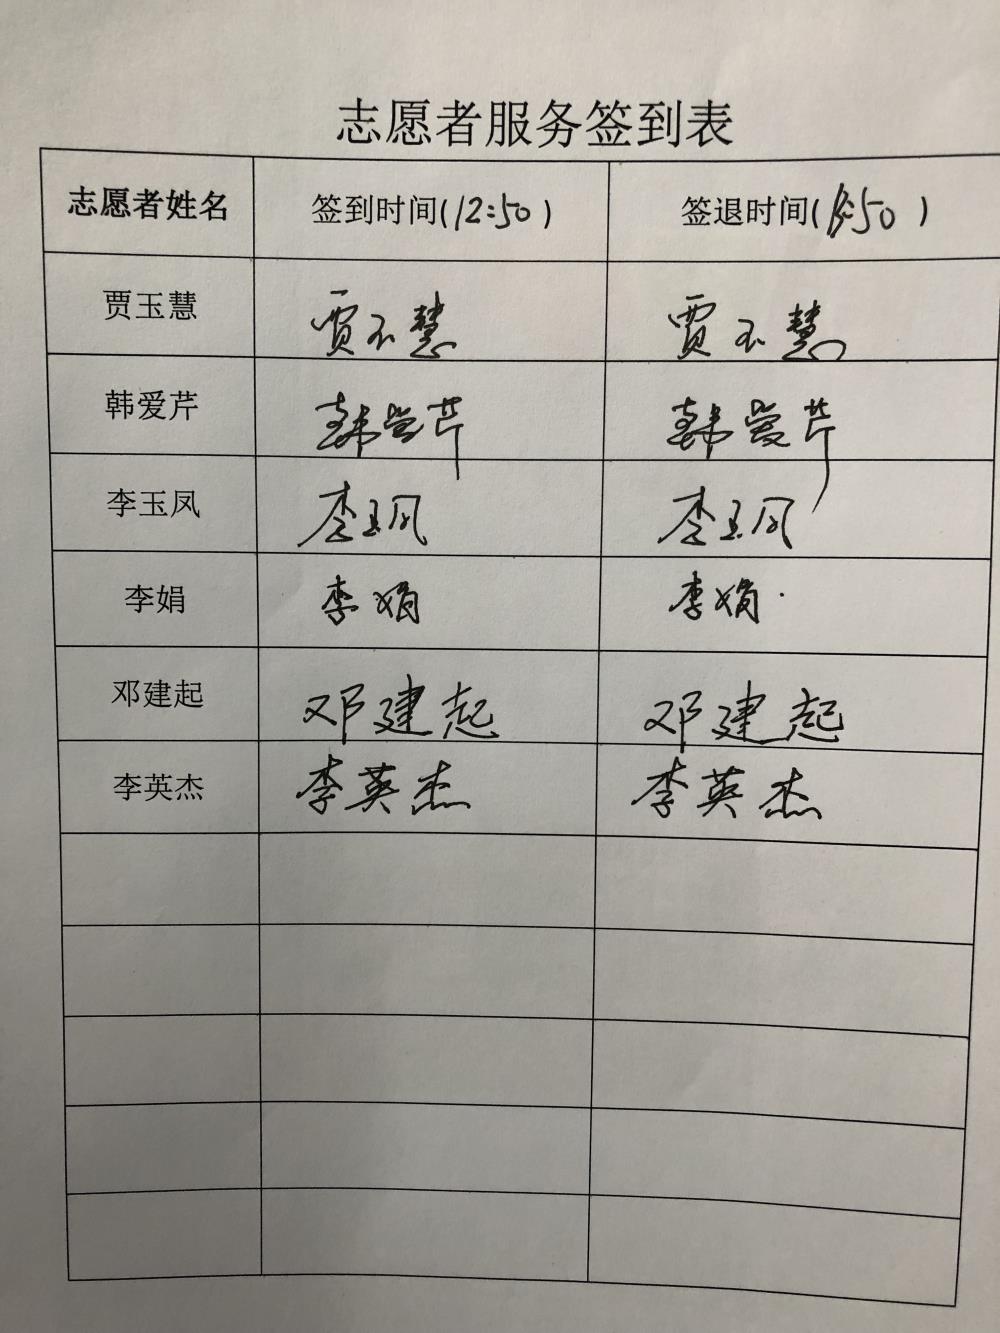 志愿者服务签到表
志愿者姓名 签到时间(12:50) 签退时间( :50 )
贾玉慧 贾玉慧 贾玉慧
韩爱芹 韩爱芹 韩爱芹
李玉凤 李玉凤 李玉凤
李娟 李娟 李娟
邓建起 邓建起 邓建起
李英杰 李英杰 李英杰